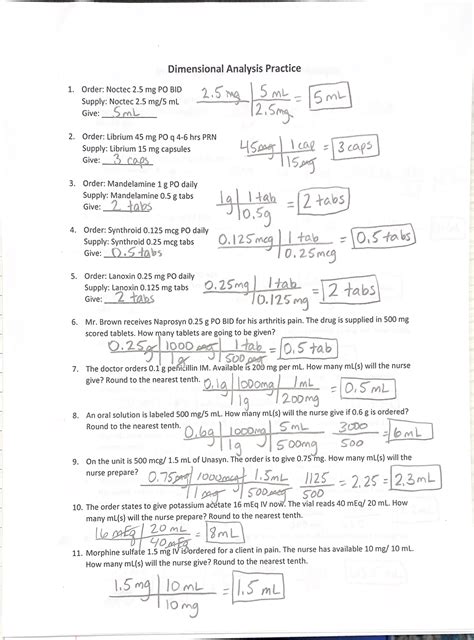 Dimensional Analysis Practice
1. Order: Noctec 2.5 mg PO BID
Supply: Noctec 2.5 mg/5 mL
Give: 5mL
2.5mg | 5 mL = 5mL
2.5mg
2. Order: Librium 45 mg PO q 4-6 hrs PRN
Supply: Librium 15 mg capsules
Give: 3 caps
45mg | 1 cap = 3 caps
15mg
3. Order: Mandelamine 1 g PO daily
Supply: Mandelamine 0.5 g tabs
Give: 2 tabs
1g | 1 tab = 2 tabs
0.5g
4. Order: Synthroid 0.125 mcg PO daily
Supply: Synthroid 0.25 mcg tabs
Give: 0.5 tabs
0.125mcg | 1 tab = 0.5 tabs
0.25mcg
5. Order: Lanoxin 0.25 mg PO daily
Supply: Lanoxin 0.125 mg tabs
Give: 2 tabs
0.25mg | 1 tab = 2 tabs
0.125mg
6. Mr. Brown receives Naprosyn 0.25 g PO BID for his arthritis pain. The drug is supplied in 500 mg
scored tablets. How many tablets are going to be given?
0.25g | 1000 mg | 1 tab = 0.5 tab
1g | 500mg
7. The doctor orders 0.1 g penicillin IM. Available is 200 mg per mL. How many mL(s) will the nurse
give? Round to the nearest tenth.
0.1g | 1000mg | 1mL = 0.5 mL
1g | 200mg
8. An oral solution is labeled 500 mg/5 mL. How many mL(s) will the nurse give if 0.6 g is ordered?
Round to the nearest tenth.
0.6g | 1000mg | 5mL 3000 = 6mL
1g | 500mg 500
9. On the unit is 500 mcg/ 1.5 mL of Unasyn. The order is to give 0.75 mg. How many mL(s) will the
nurse prepare?
0.75mg | 1000mcg | 1.5mL 1125 = 2.25 = 2.3mL
1mg | 500mcg 500
10. The order states to give potassium acetate 16 mEq IV now. The vial reads 40 mEq/ 20 mL. How
many mL(s) will the nurse prepare? Round to the nearest tenth.
16 mEq | 20 mL = 8mL
40 mEq
11. Morphine sulfate 1.5 mg IV is ordered for a client in pain. The nurse has available 10 mg/ 10 mL.
How many mL(s) will the nurse give? Round to the nearest tenth.
1.5 mg | 10 mL = 1.5 mL
10 mg